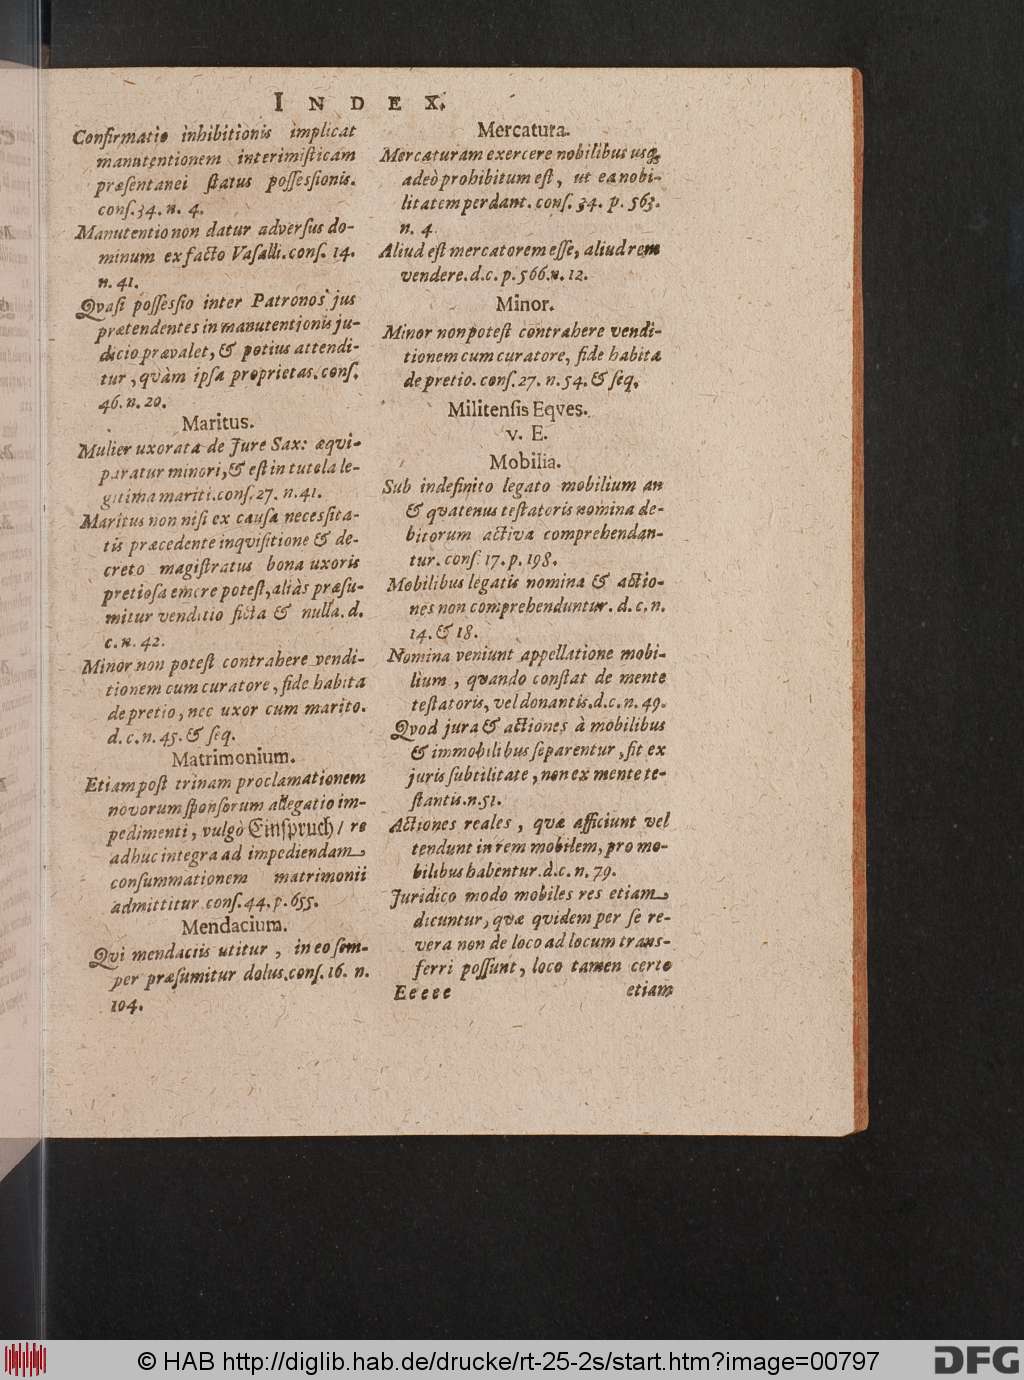 INDEX.
Confirmatio inhibitionis implicat
manutentionem interimisticam
præsentanei status possessionis.
cons. 34. n. 4.
Manutentio non datur adversus do-
minum ex facto Vasalli. cons. 14.
n. 41.
Qvasi possessio inter Patronos jus
prætendentes in manutentionis ju-
dicio prævalet, & potius attendi-
tur, qvàm ipsa proprietas. cons.
46. n. 20.
Maritus.
Mulier uxorata de Jure Sax: æqvi-
paratur minori, & est in tutela le-
gitima mariti. cons. 27. n. 41.
Maritus non nisi ex causa necessita-
tis præcedente inqvisitione & de-
creto magistratus bona uxoris
pretiosa emere potest, aliàs præsu-
mitur venditio ficta & nulla. d.
c. n. 42.
Minor non potest contrahere vendi-
tionem cum curatore, fide habita
de pretio, nec uxor cum marito.
d. c. n. 45. & seq.
Matrimonium.
Etiam post trinam proclamationem
novorum sponsorum allegatio im-
pedimenti, vulgò Einspruch / re
adhuc integra ad impediendam
consummationem matrimonii
admittitur cons. 44. p. 655.
Mendacium.
Qvi mendaciis utitur, in eo sem-
per præsumitur dolus. cons. 16. n.
104.
Mercatura.
Mercaturam exercere nobilibus usq;
adeò prohibitum est, ut ea nobi-
litatem perdant. cons. 34. p. 563.
n. 4.
Aliud est mercatorem esse, aliud rem
vendere. d. c. p. 566. n. 12.
Minor.
Minor non potest contrahere vendi-
tionem cum curatore, fide habita
de pretio. cons. 27. n. 54. & seq.
Militensis Eqves.
v. E.
Mobilia.
Sub indefinito legato mobilium an
& qvatenus testatoris nomina de-
bitorum activa comprehendan-
tur. cons. 17. p. 198.
Mobilibus legatis nomina & actio-
nes non comprehenduntur. d. c. n.
14. & 18.
Nomina veniunt appellatione mobi-
lium, qvando constat de mente
testatoris, vel donantis. d. c. n. 49.
Qvod jura & actiones à mobilibus
& immobilibus separentur, fit ex
juris subtilitate, non ex mente te-
stantis. n. 51.
Actiones reales, qvæ afficiunt vel
tendunt in rem mobilem, pro mo-
bilibus habentur. d. c. n. 79.
Juridico modo mobiles res etiam
dicuntur, qvæ qvidem per se re-
vera non de loco ad locum trans-
ferri possunt, loco tamen certo
Eeeee etiam
© HAB http://diglib.hab.de/drucke/rt-25-2s/start.htm?image=00797
DFG